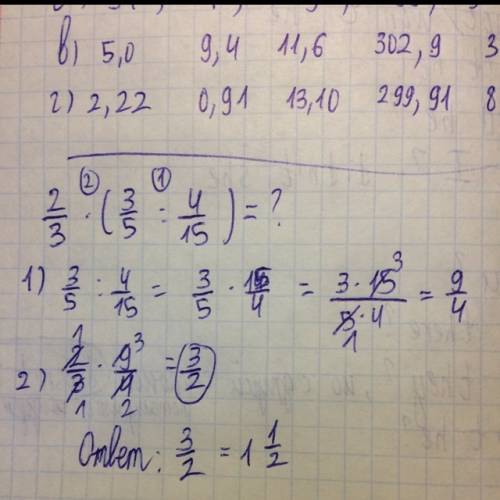 в) 5,0 9,4 11,6 302,9 3
г) 2,22 0,91 13,10 299,91 8
2/3 ·② (3/5 :① 4/15) = ?
1) 3/5 : 4/15 = 3/5 · 15/4 = 3·15³/5₁·4 = 9/4
2) 2¹/3₁ · 9³/4₂ = 3/2
Ответ: 3/2 = 1 1/2